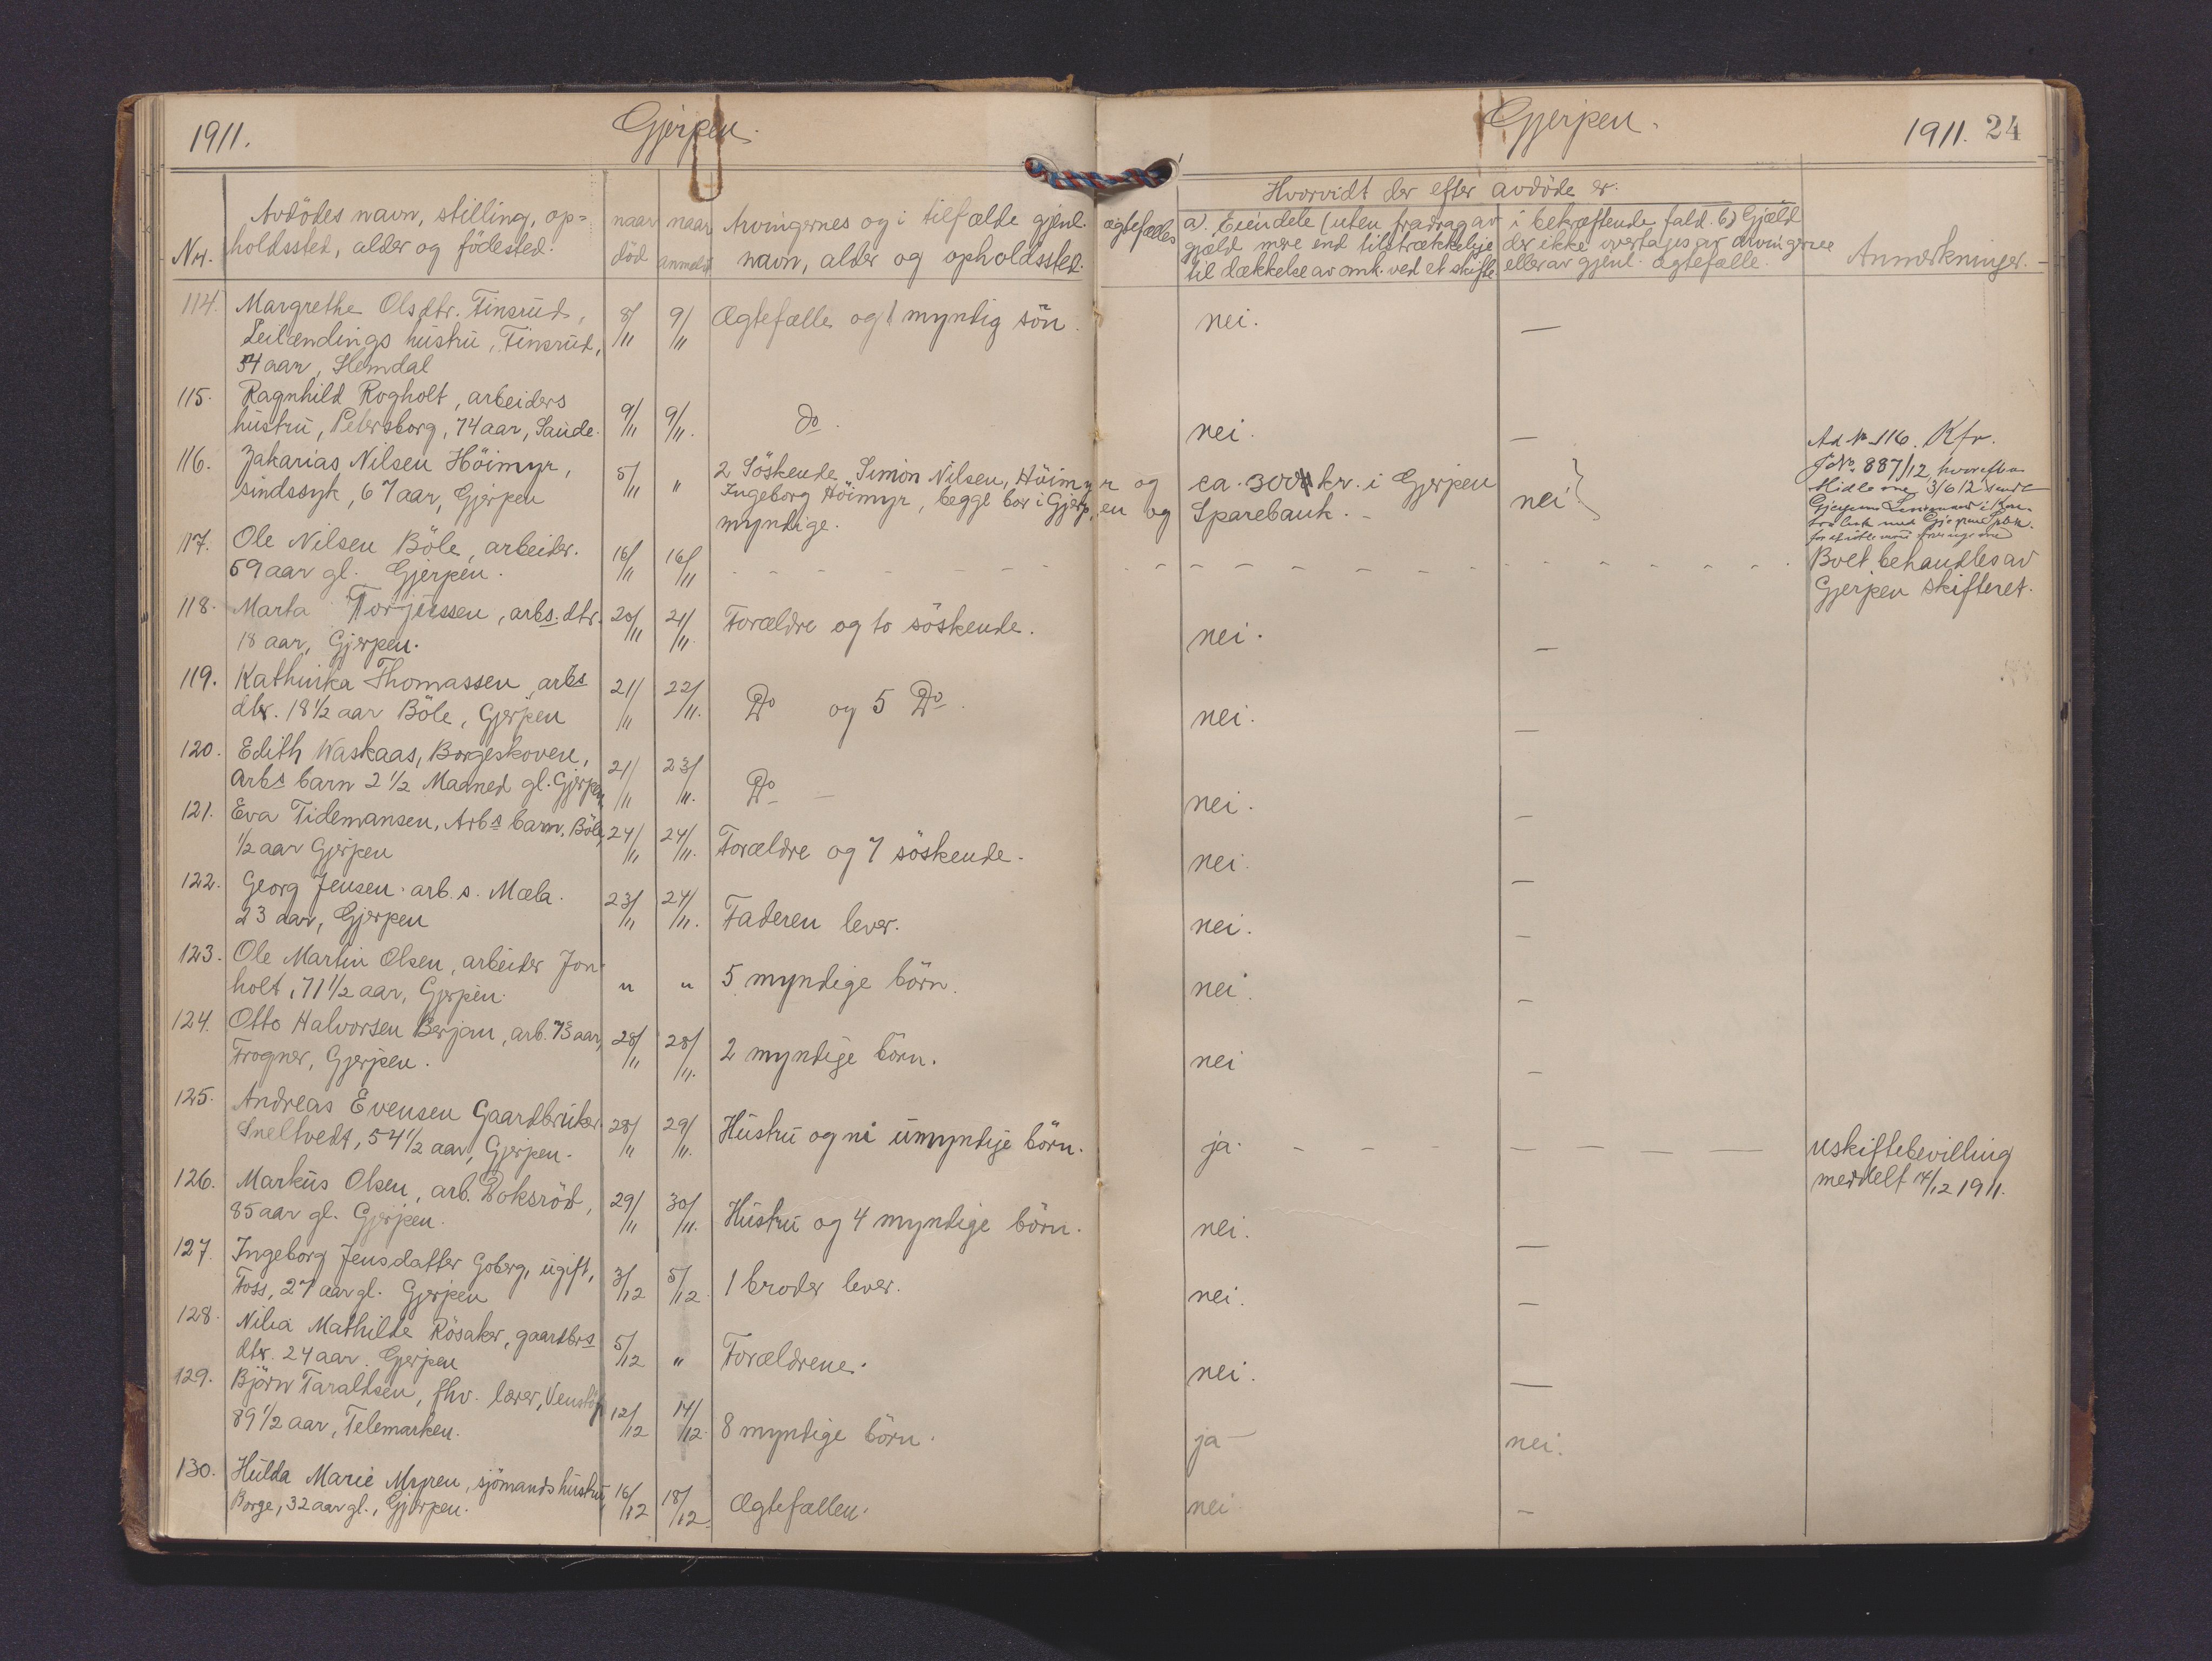 1911.
Gjerpen.
Gjerpen.
1911. 24
Nr.
Avdödes navn, stilling, op=
holdssted, alder og födested.
naar
död
naar
anmeldt
Arvingernes og i tilfælde gjenl. ægtefælles
navn, alder og opholdssted.
Hvorvidt der efter avdöde er:
a). Eiendele (uten fradrag av
gjæld mere end tilstrækkelige
til dækkelse av omk. ved et skifte
i bekræftende fald. b) Gjæld
der ikke overtages av arvingerne
eller av gjenl. ægtefælle.
Anmerkninger.
114. Margrethe Olsdtr. Finsrud,
Leilændings hustru, Finsrud,
54 aar, Slemdal
8/11 9/11 Ægtefælle og 1 myndig sön. nei. —
115. Ragnhild Rogholt, arbeiders
hustru, Petersborg, 74 aar, Saude.
9/11 9/11. do. nei. —
116. Zakarias Nilsen Höimyr,
sindssyk, 67 aar, Gjerpen
5/11 " 2 Söskende Simon Nilsen, Höimyr og
Ingeborg Höimyr, begge bor i Gjerpen og
myndige.
ca. 300 kr. i Gjerpen
Sparebank. –
nei
Ad No 116. Kfr.
J No. 887/12, hvorefter
Midlerne 3/6 12 sendt
Gjerpens Lensmand
117. Ole Nilsen Böle, arbeider.
59 aar gl. Gjerpen.
16/11 16/11
Boet behandles av
Gjerpen skifteret.
118. Marta Torjussen, arbs. dtr.
18 aar, Gjerpen.
20/11 21/11. Forældre og to söskende. nei. —
119. Kathinka Thomassen, arbs
dtr. 18 1/2 aar Böle, Gjerpen
21/11 22/11. Do og 5 Do. nei. —
120. Edith Waskaas, Borgeskoven,
Arbs barn 2 1/2 Maaned gl. Gjerpen
21/11 23/11. Do — nei. —
121. Eva Tidemansen, Arbs barn, Böle,
1/2 aar Gjerpen
24/11 24/11. Forældre og 7 söskende. nei. —
122. Georg Jensen. arb. s. Mæla.
23 aar, Gjerpen
23/11 24/11. Faderen lever. nei. —
123. Ole Martin Olsen, arbeider Jon-
holt, 71 1/2 aar, Gjerpen.
" " 5 myndige börn. nei. —
124. Otto Halvorsen Berjan, arb. 73 aar,
Frogner, Gjerpen.
28/11 28/11. 2 myndige börn. nei —
125. Andreas Evensen Gaardbruker
Sneltvedt, 54 1/2 aar, Gjerpen.
28/11 29/11. Hustru og ni umyndige börn. ja. — — — —
uskiftebevilling
meddelt 14/12 1911.
126. Markus Olsen, arb. Boksröd,
85 aar gl. Gjerpen.
29/11 30/11. Hustru og 4 myndige börn. nei. —
127. Ingeborg Jensdatter Goberg, ugift,
Foss, 27 aar gl. Gjerpen
3/12 5/12. 1 broder lever. nei. —
128. Nilia Mathilde Rösaker, gaardbrs
dtr. 24 aar. Gjerpen
5/12 " Forældrene. nei. —
129. Björn Taraldsen, fhv. lærer, Venstöp
89 1/2 aar, Telemarken.
12/12 14/12. 8 myndige börn. ja — nei.
130. Hulda Marie Myren, sjömands hustru,
Borge, 32 aar gl., Gjerpen.
16/12 18/12. Ægtefællen. nei —